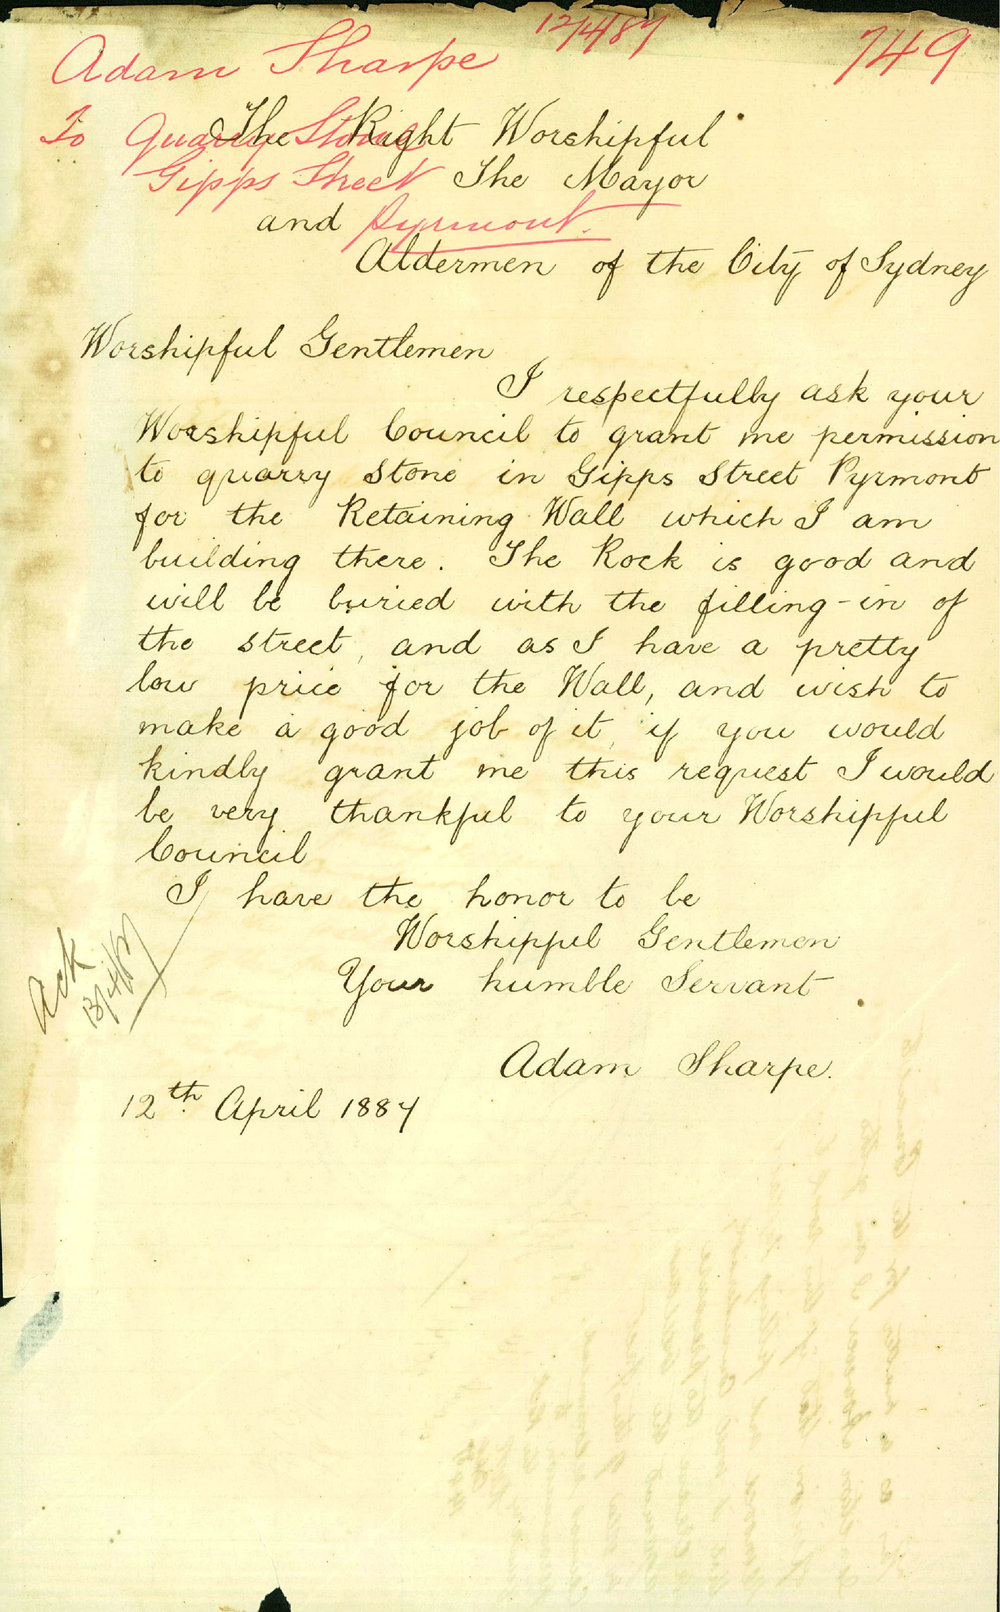 12/4/87
Adam Sharpe
749
To Quarry Stone
Gipps Street
Pyrmont.
The Right Worshipful
The Mayor
and
Aldermen of the City of Sydney
Worshipful Gentlemen
I respectfully ask your
Worshipful Council to grant me permission
to quarry Stone in Gipps Street Pyrmont
for the Retaining Wall which I am
building there. The Rock is good and
will be buried with the filling-in of
the street, and as I have a pretty
low price for the Wall, and wish to
make a good job of it, if you would
kindly grant me this request I would
be very thankful to your Worshipful
Council
I have the honor to be
Worshipful Gentlemen
Your humble Servant
Ack
13/4/87
Adam Sharpe.
12th April 1887